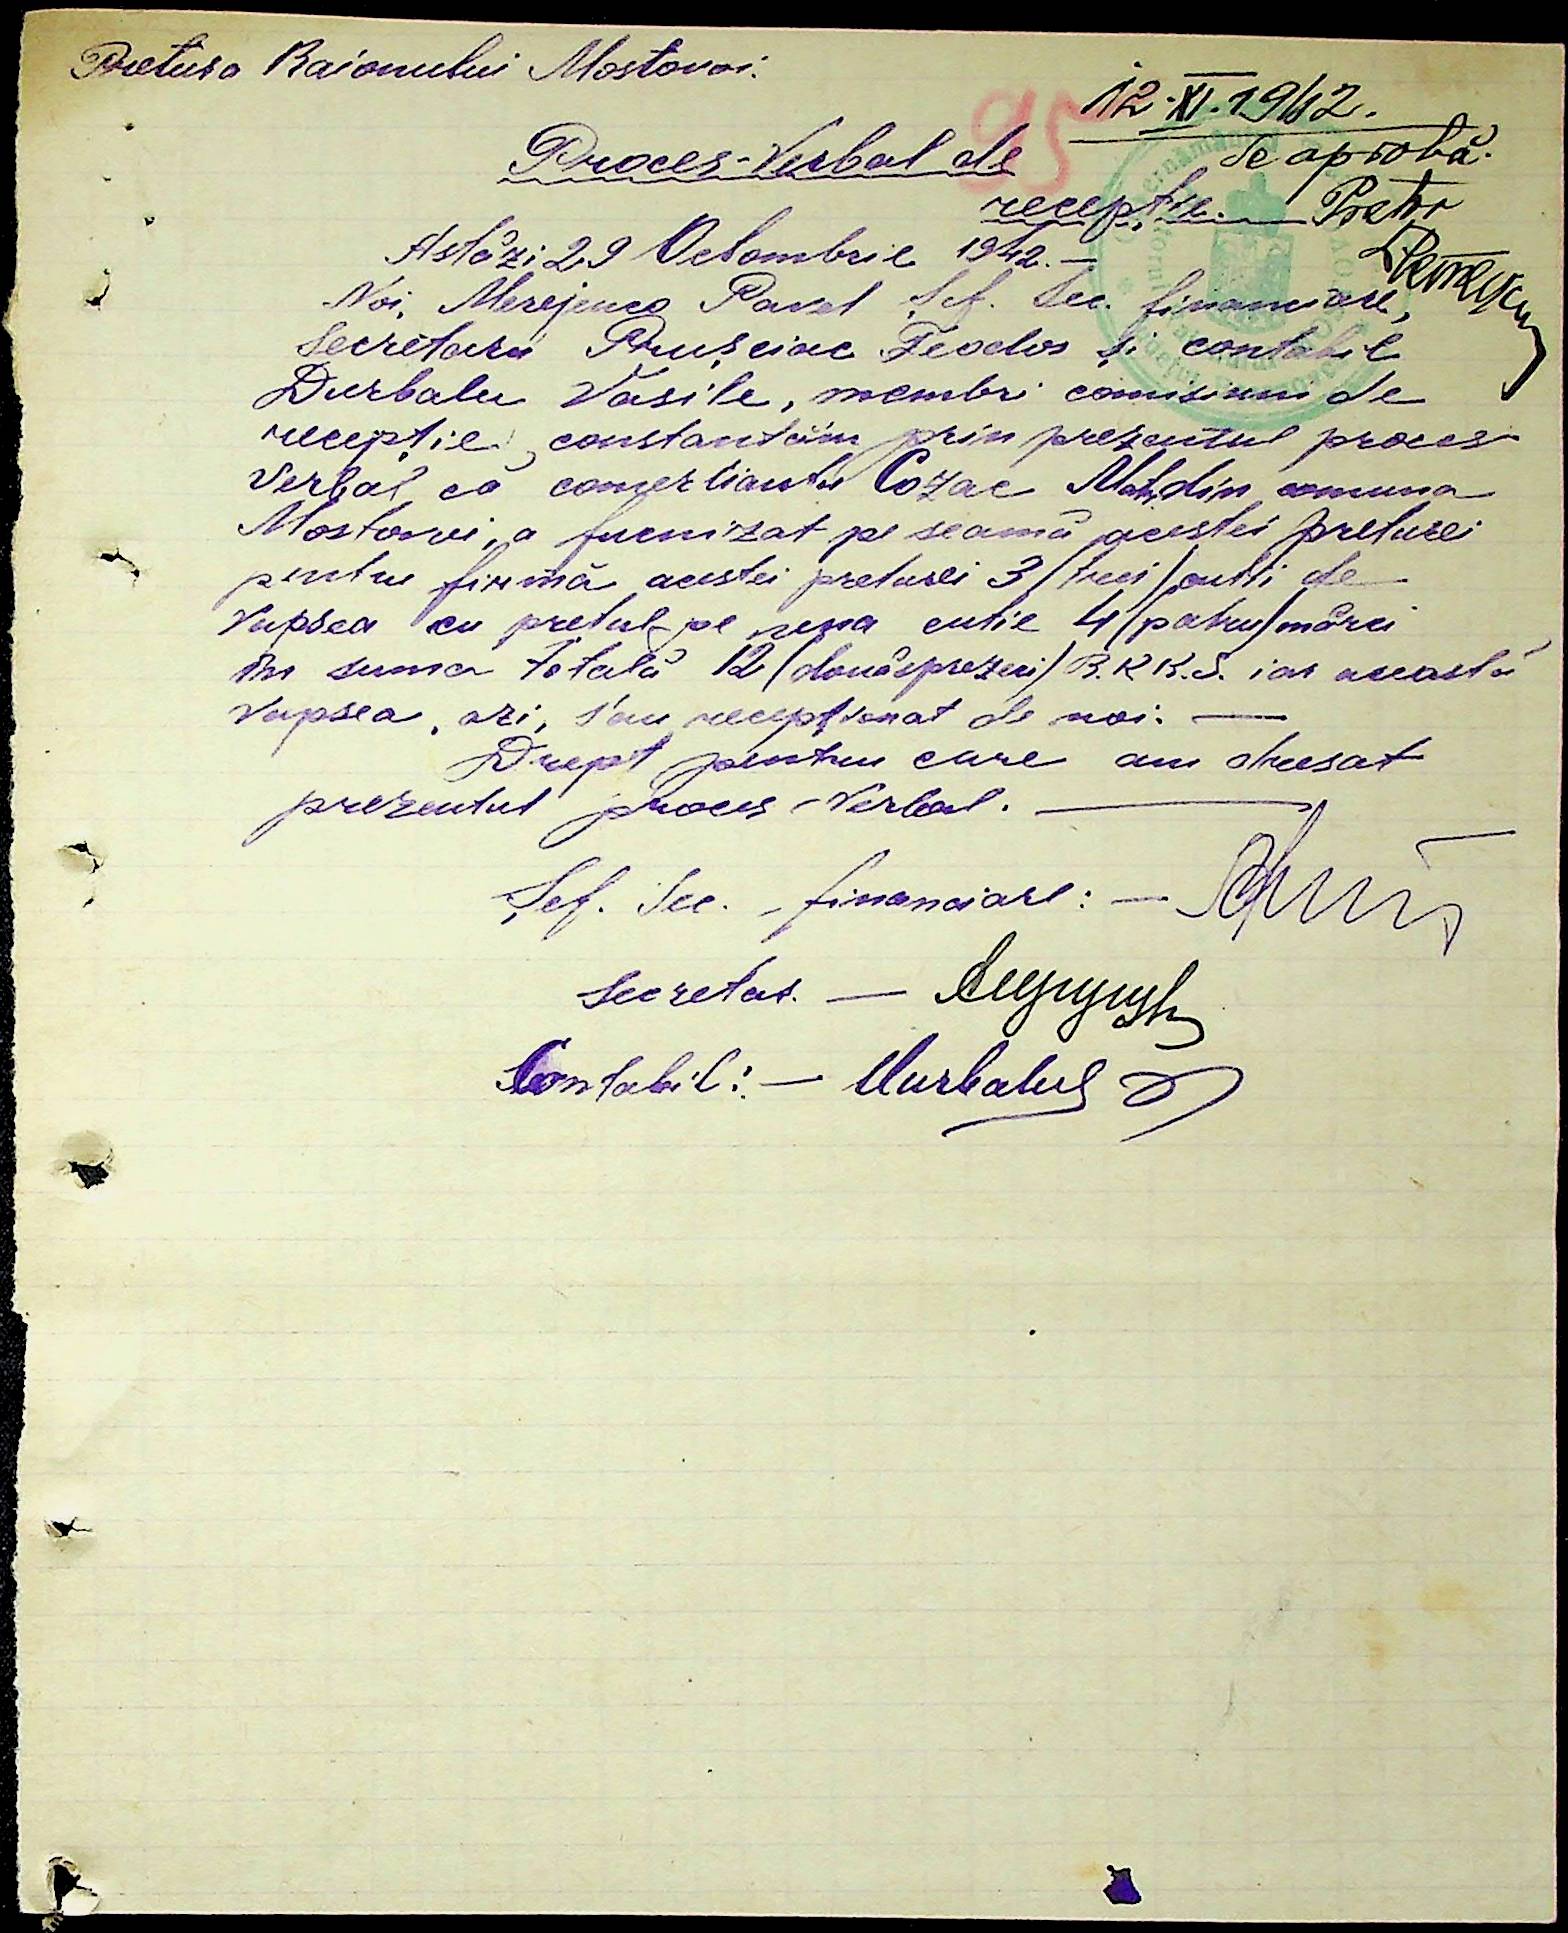 Pretura Raionului Mostovoi.
95
12·XI·1942.
Se aprobă.
Pretor
Proces-Verbal de
recepție.
Astăzi 29 Octombrie 1942.—
Noi, Merejenco Pavel Șef. Sec. financiare,
Secretaru Prușciac Feodos și contabil
Durbalu Vasile, membri comisiuni de
recepție, constantăm prin prezentul proces
Verbal că comerliantu Cozac din comuna
Mostovoi, a furnizat pe seamă acestei preturei
pentru firmă acestei preturei 3/trei/cutii de
Vapsea cu prețul pe una cutie 4/patru/mărci
în suma totală 12/douăsprezeci/R.K.K.S. iar această
Vapsea, azi, s'au recepționat de noi. —
Drept pentru care am dresat
prezentul proces-Verbal. —
Șef. Sec. financiare: —
Secretar. —
Contabil: — Durbalu